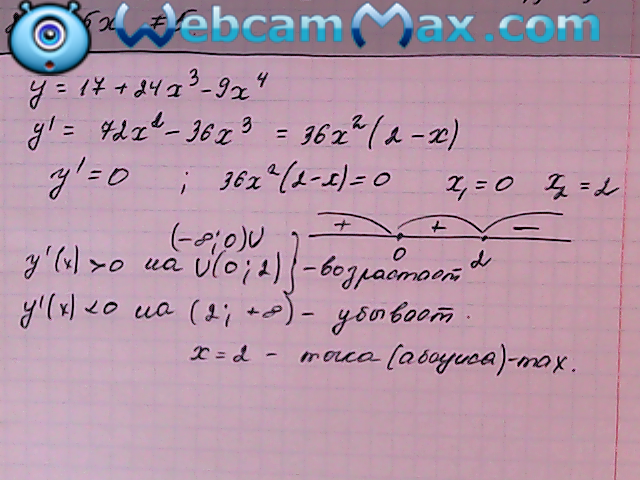 WebcamMax.com
y = 17 + 24x³ - 9x⁴
y' = 72x² - 36x³ = 36x²(2 - x)
y' = 0 ; 36x²(2-x) = 0 x₁ = 0 x₂ = 2
+ + -
0 2
(-∞; 0) ∪
y'(x) > 0 на ∪(0; 2) } - возрастает
y'(x) < 0 на (2; +∞) - убывает.
x = 2 - точка (абсцисса) - max.